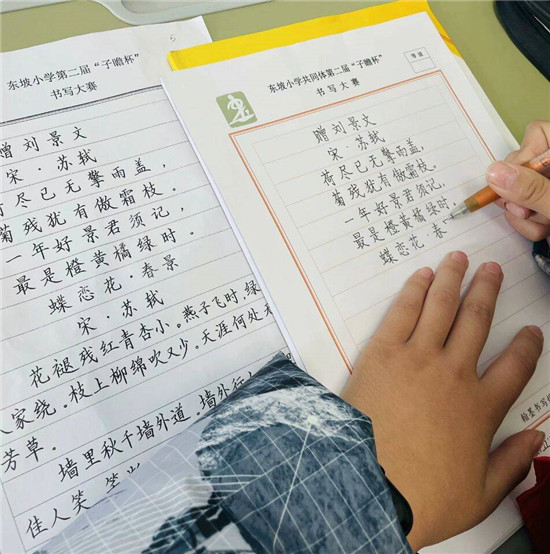 5
东坡小学第二届“子瞻杯”
书写大赛
赠刘景文
宋·苏轼
荷尽已无擎雨盖，
菊残犹有傲霜枝。
一年好景君须记，
最是橙黄橘绿时。
蝶恋花·春景
宋·苏轼
花褪残红青杏小。燕子飞时，绿
人家绕。枝上柳绵吹又少。天涯何处
芳草。
墙里秋千墙外道。墙外行人
佳人笑
东坡小学共同体第二届“子瞻杯”
书写大赛
等级
赠刘景文
宋·苏轼
荷尽已无擎雨盖，
菊残犹有傲霜枝。
一年好景君须记，
最是橙黄橘绿时，
蝶恋花·春
翰墨书写